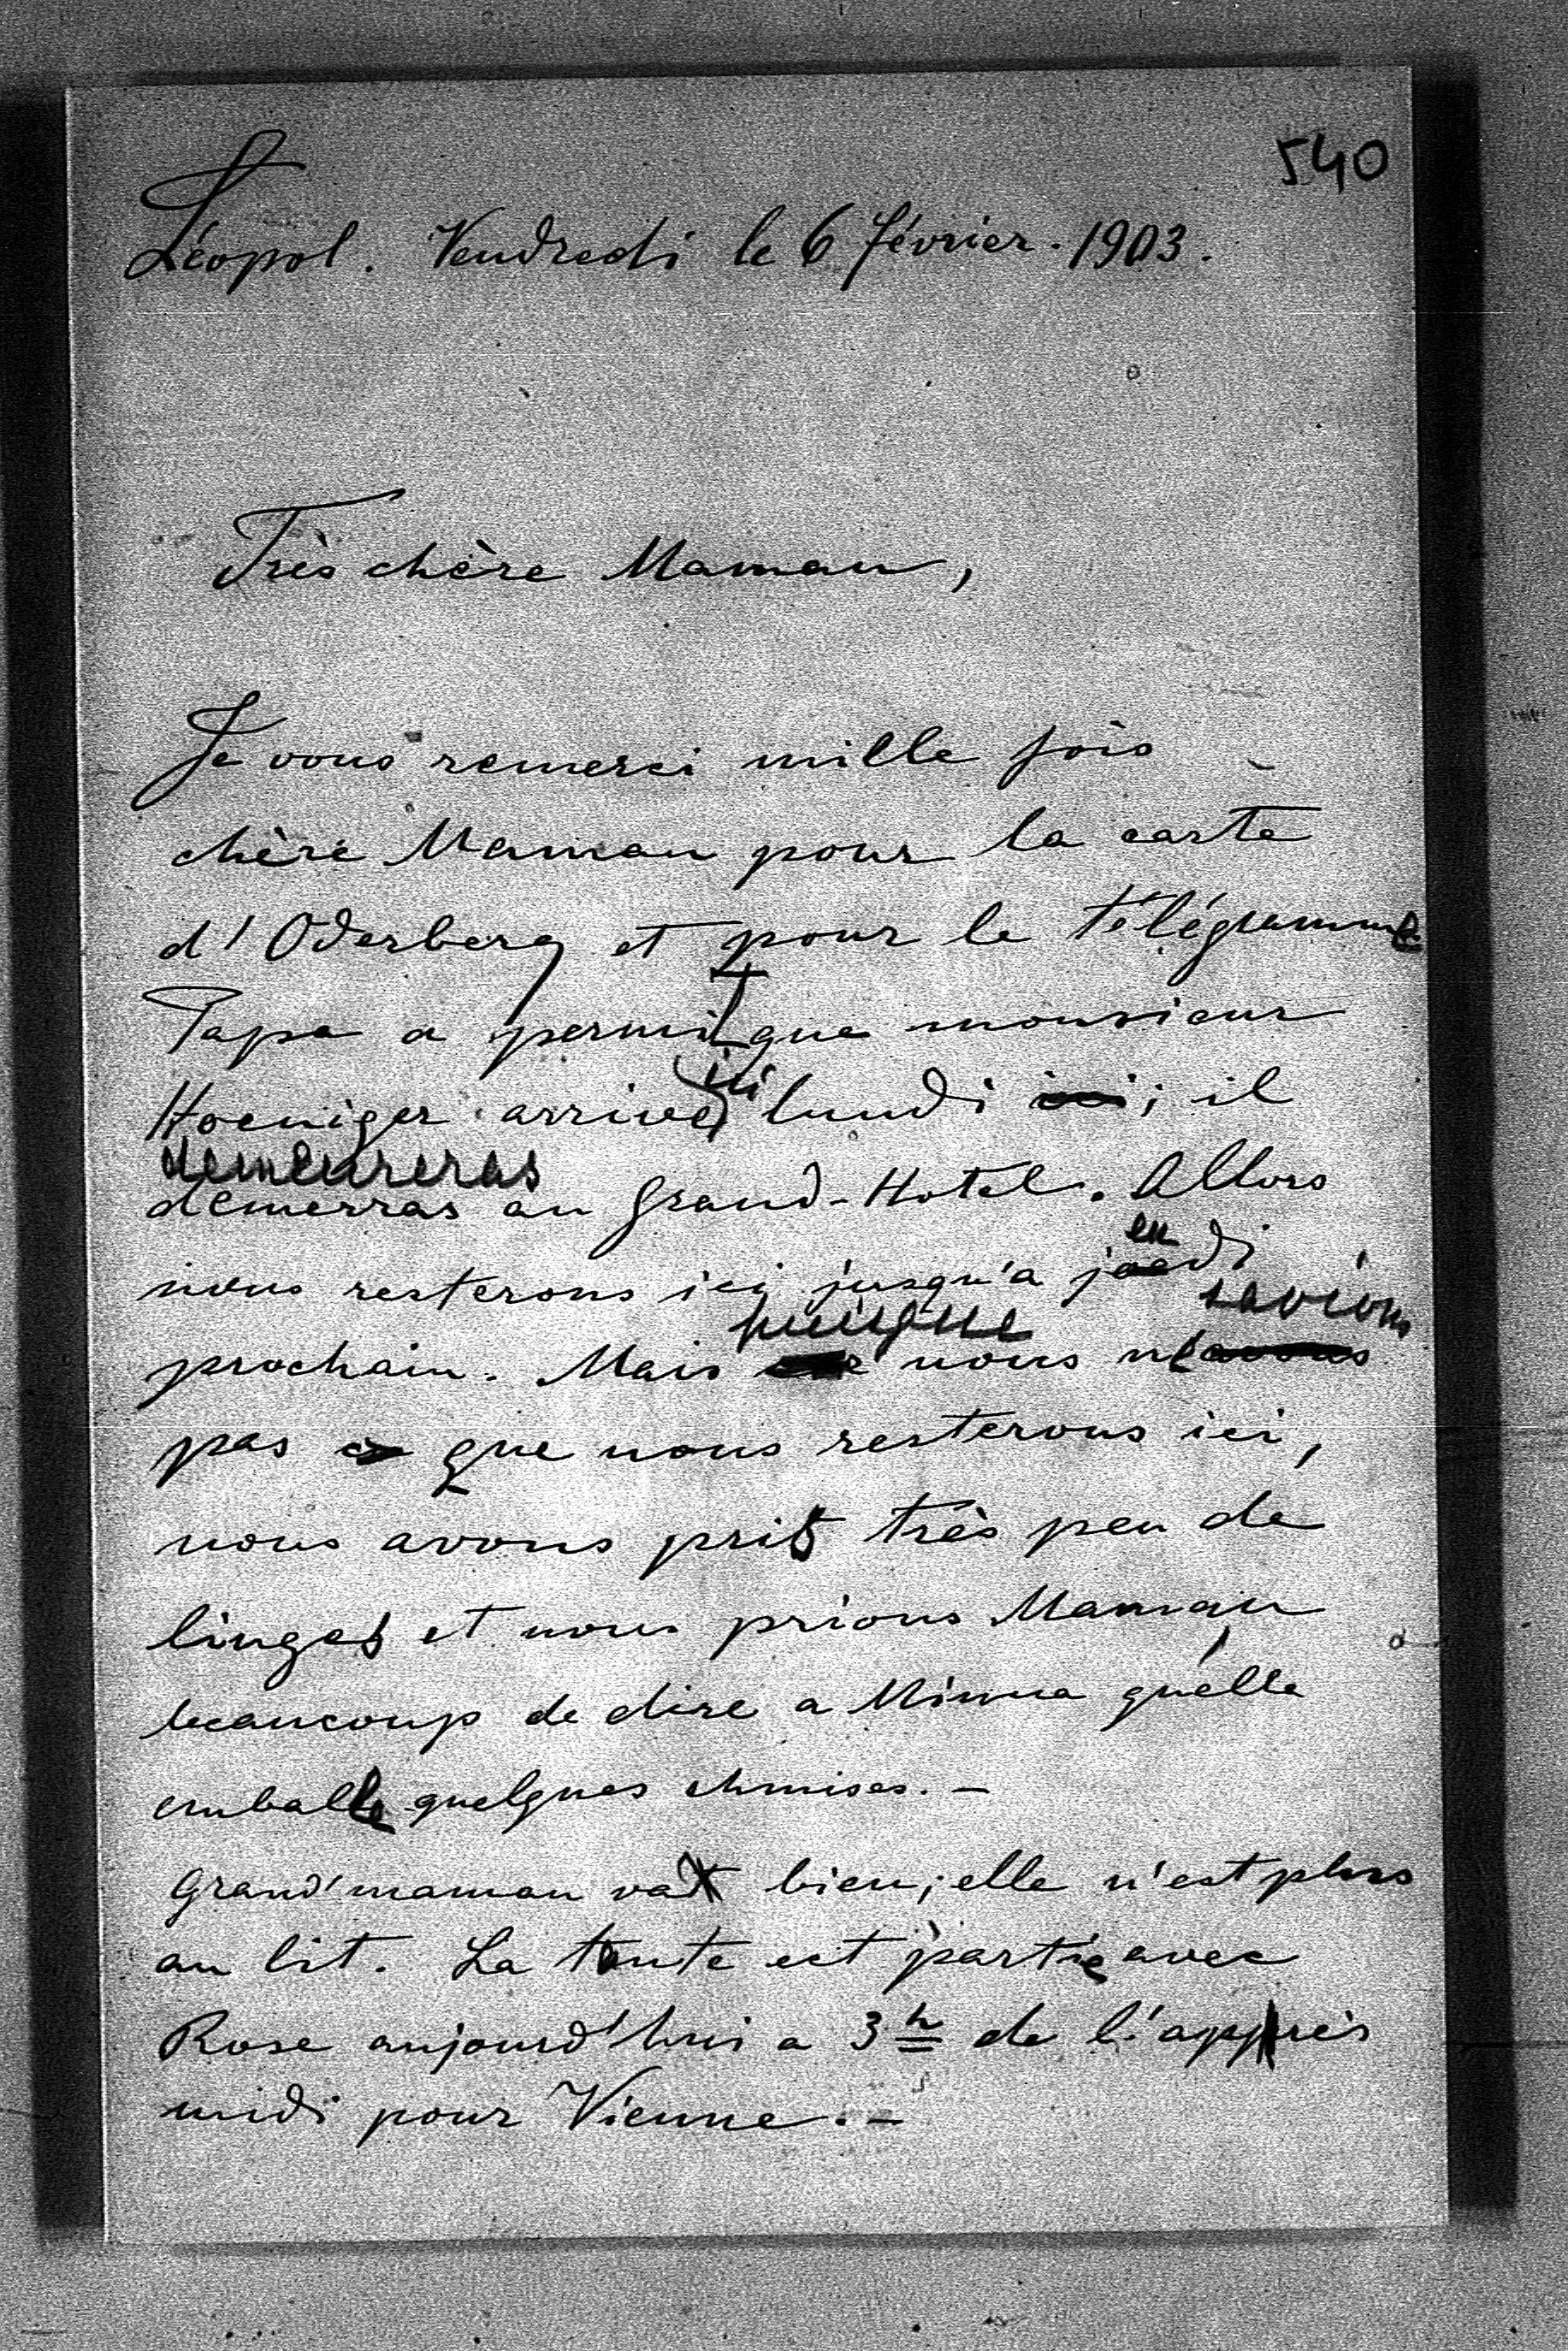 540
Léopol. Vendredi le 6 février. 1903.
Très chère Maman,
Je vous remerci mille fois
chère Maman pour la carte
d'Oderberg et pour le télégramme
Papa a permit que monsieur
Hoeniger arrive ici lundi ici; il
demeureras
demerras au Grand-Hotel. Allors
en
nous resterons ici jusqu'a joedi
puisque savions
prochain. Mais nous ne savons
pas que nous resterons ici,
nous avons pris très peu de
linges et nous prions Maman
beaucoup de dire a Minna qu'elle
emballe quelques chmises. –
Grand'maman vat bien; elle n'est plus
au lit. La tante est partie avec
Rose aujourd'hui a 3 h de l'apprès
midi pour Vienne. –